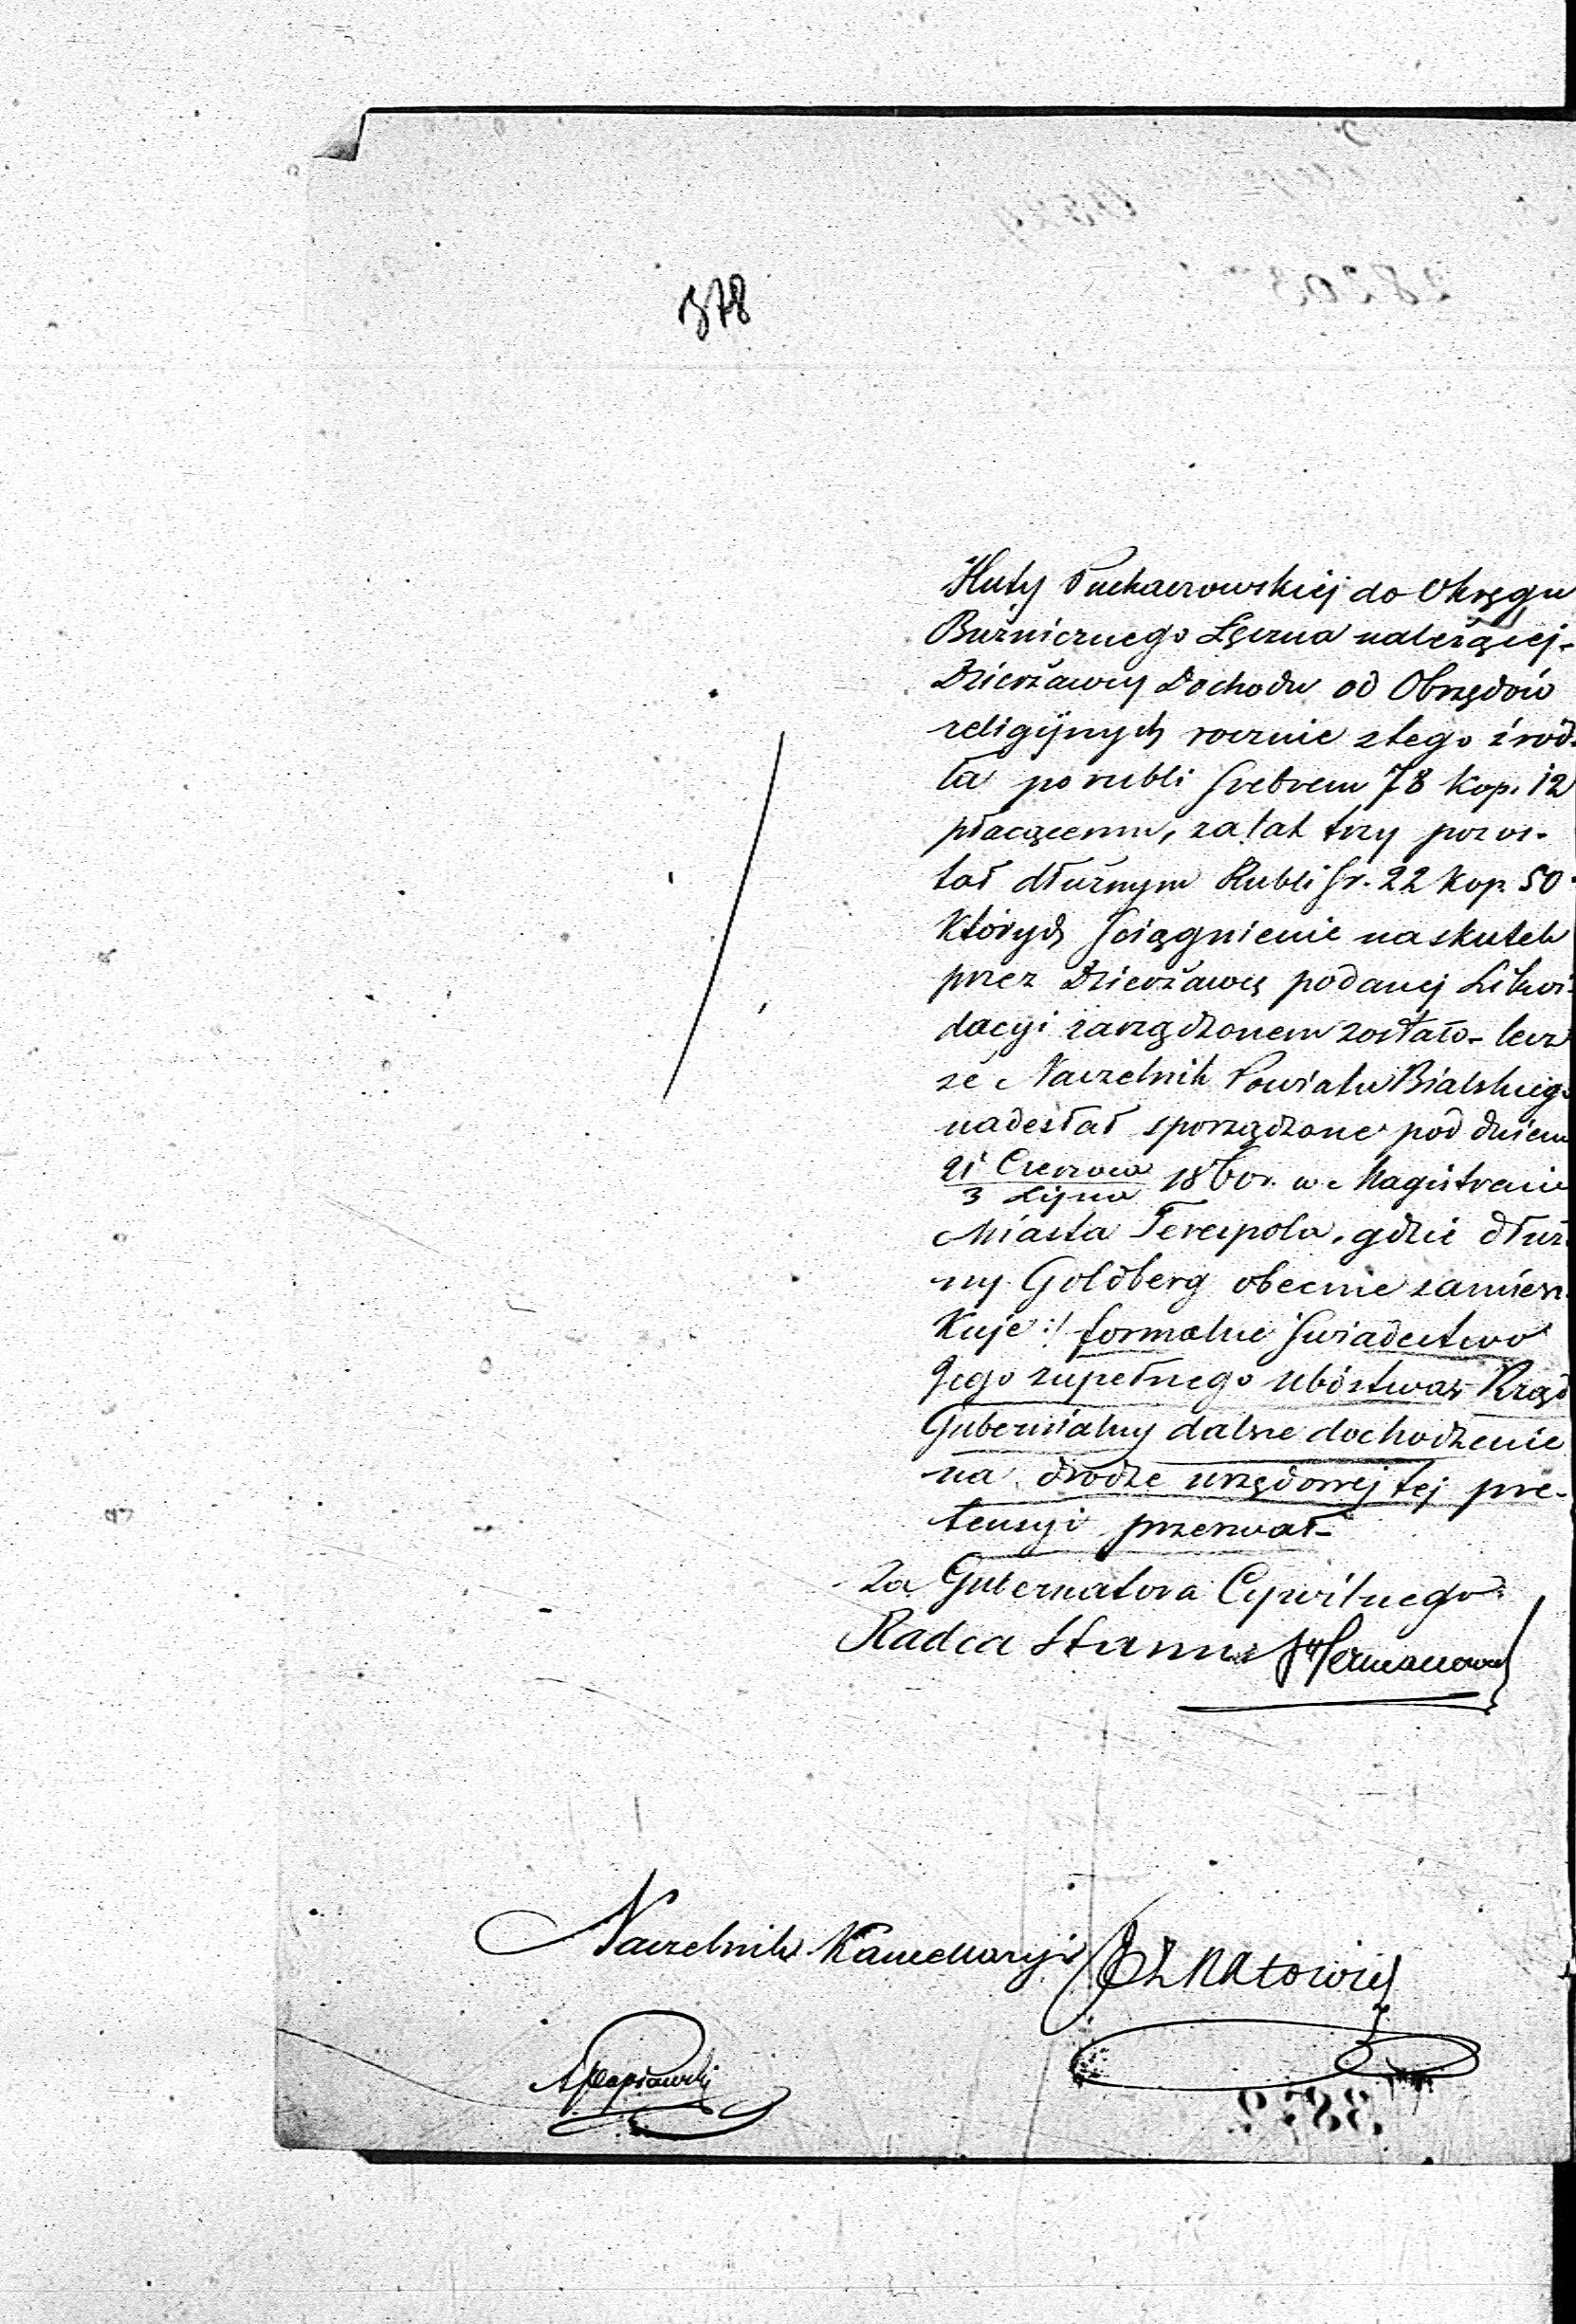 378
Huty Puchaczowskiej do Okręgu
Bużnicznego Łęczna należącej-
Dzierżawcy Dochodu od Obrzędów
religijnych rocznie z tego źród-
ła po rubli srebrem 78 kop. 12
płacącemu, za lat trzy pozos-
tał dłużnym Rubli sr. 22 kop. 50.
których ściągnienie na skutek
przez Dzierżawcę podanej Likwi-
dacyi zarządzonem zostało- lecz
że Naczelnik Powiatu Bialskiego
nadesłał sporządzone pod dniem
21 Czerwca / 3 Lipca 1860 r. w Magistracie
Miasta Terespola, gdzie dłuż-
ny Goldberg obecnie zamiesz-
kuje :/ formalne świadectwo
Jego zupełnego ubóstwa, Rząd
Gubernialny dalsze dochodzenie
na drodze urzędowej tej pre-
tensyi przerwał-
Za Gubernatora Cywilnego
Radca Stanu
Naczelnik Kancellaryi